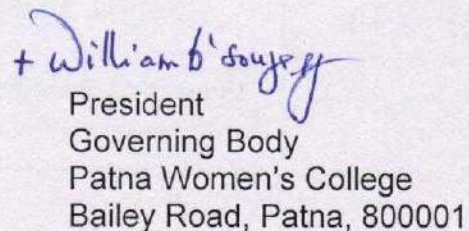 + William D'Souza SJ
President
Governing Body
Patna Women's College
Bailey Road, Patna, 800001